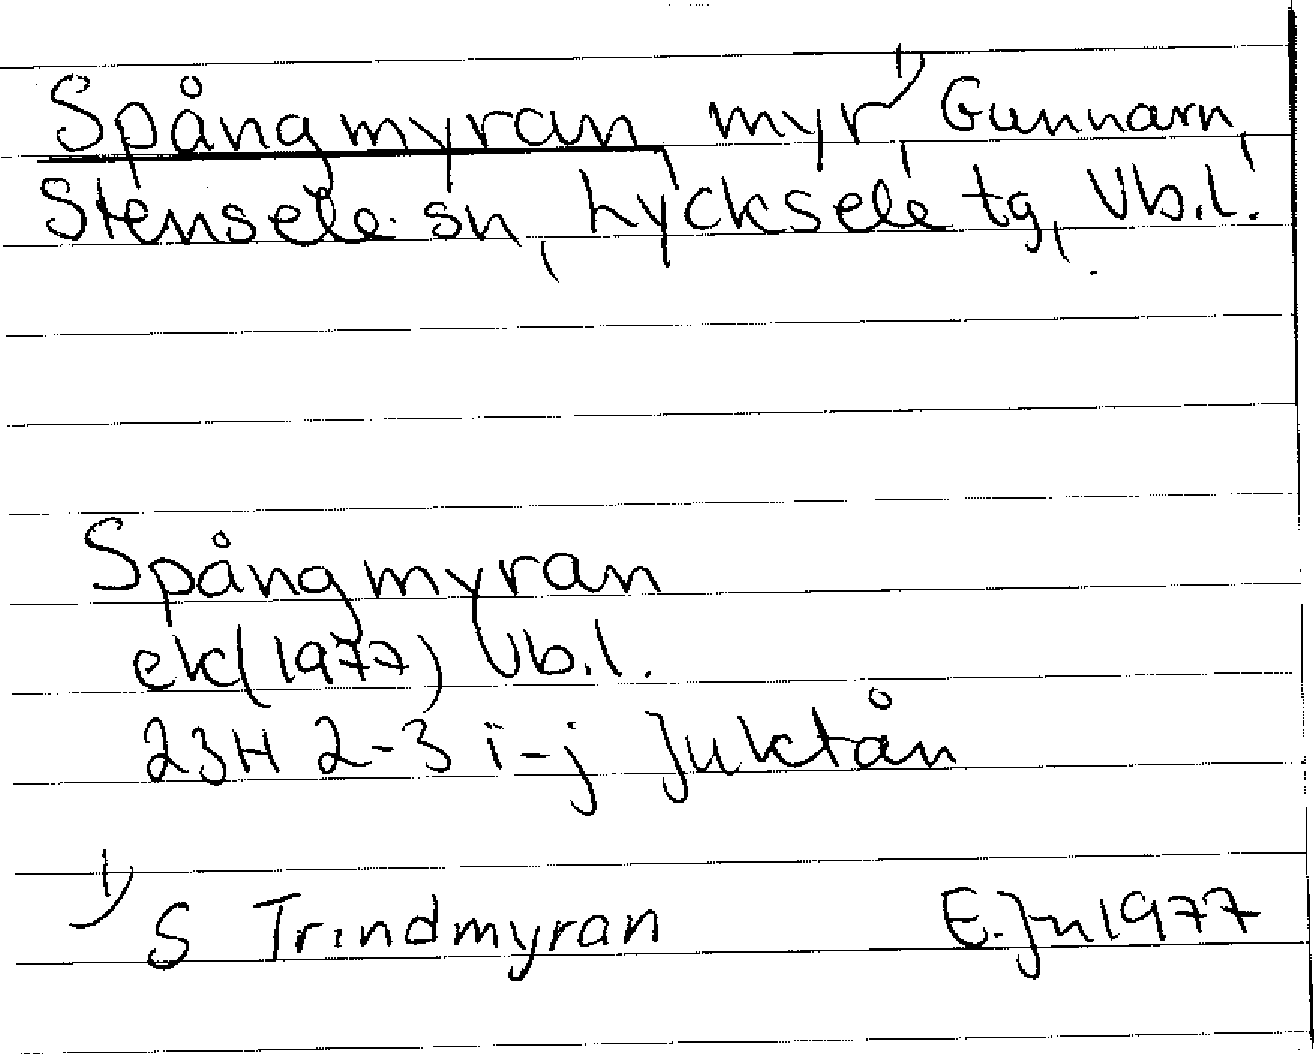 Spångmyran, myr¹⁾ Gunnarn,
Stensele sn, Lycksele tg, Vb.l.
Spångmyran
ek (1977) Vb.l.
23H 2-3 i-j Juktån
¹⁾ S Trindmyran E.Jn 1977